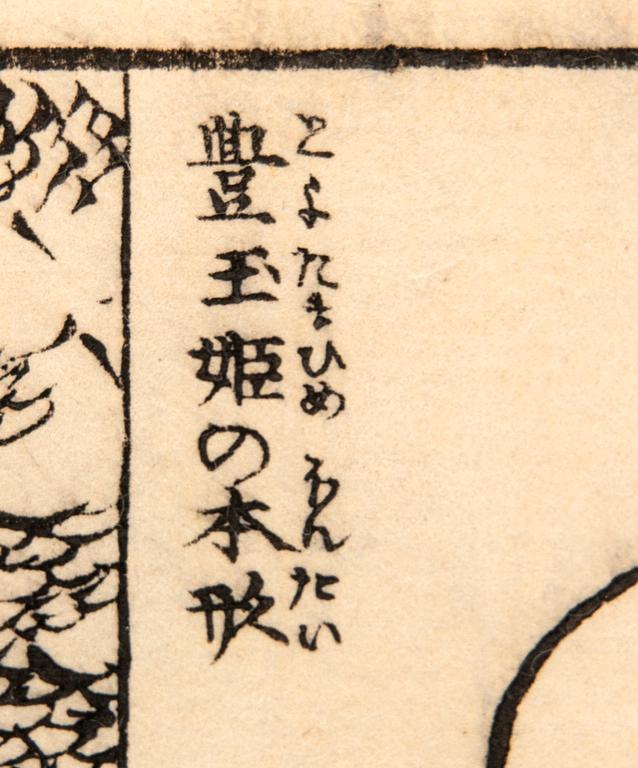 とよたまひめ ほんたい
豊玉姫の本形